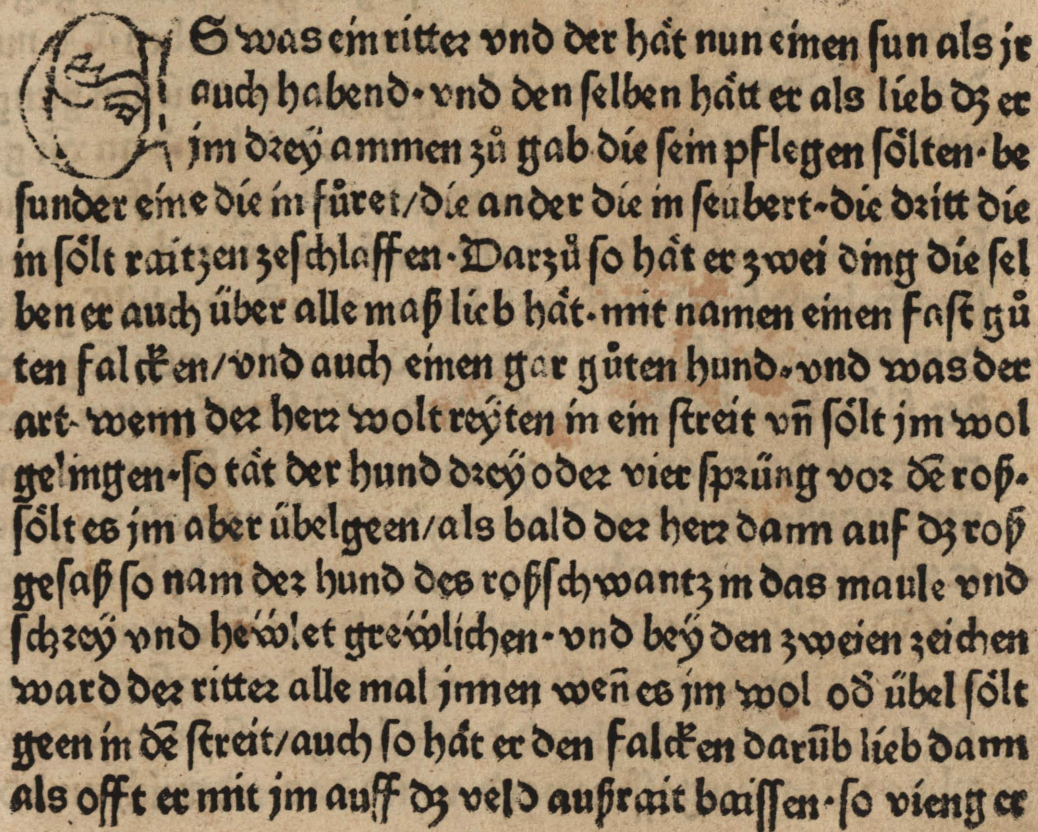 ES was ein ritter vnd der hät nun einen sun als jr
auch habend· vnd den selben hätt er als lieb dz er
jm drey̎ ammen zů gab die sein pflegen sölten· be
sunder eine die in fůret/die ander die in seubert·die dritt die
in sölt raitzen zeschlaffen·Darzů so hät er zwei ding die sel
ben er auch über alle maß lieb hät·mit namen einen fast gů
ten falcken/vnd auch einen gar gůten hund·vnd was der
art· wenn der herr wolt reÿten in ein streit vn̄ sölt jm wol
gelingen·so tät der hund dreÿ oder vier sprüng vor dē roß·
sölt es jm aber übelgeen/als bald der herr dann auf dz roß
gesaß so nam der hund des roßschwantz in das maule vnd
schreÿ vnd hewlet grewlichen·vnd beÿ den zweien zeichen
ward der ritter alle mal jnnen weñ es jm wol od̄ übel sölt
geen in dē streit/auch so hät er den falcken darūb lieb dann
als offt er mit jm auff dz veld außrait baissen·so vieng er